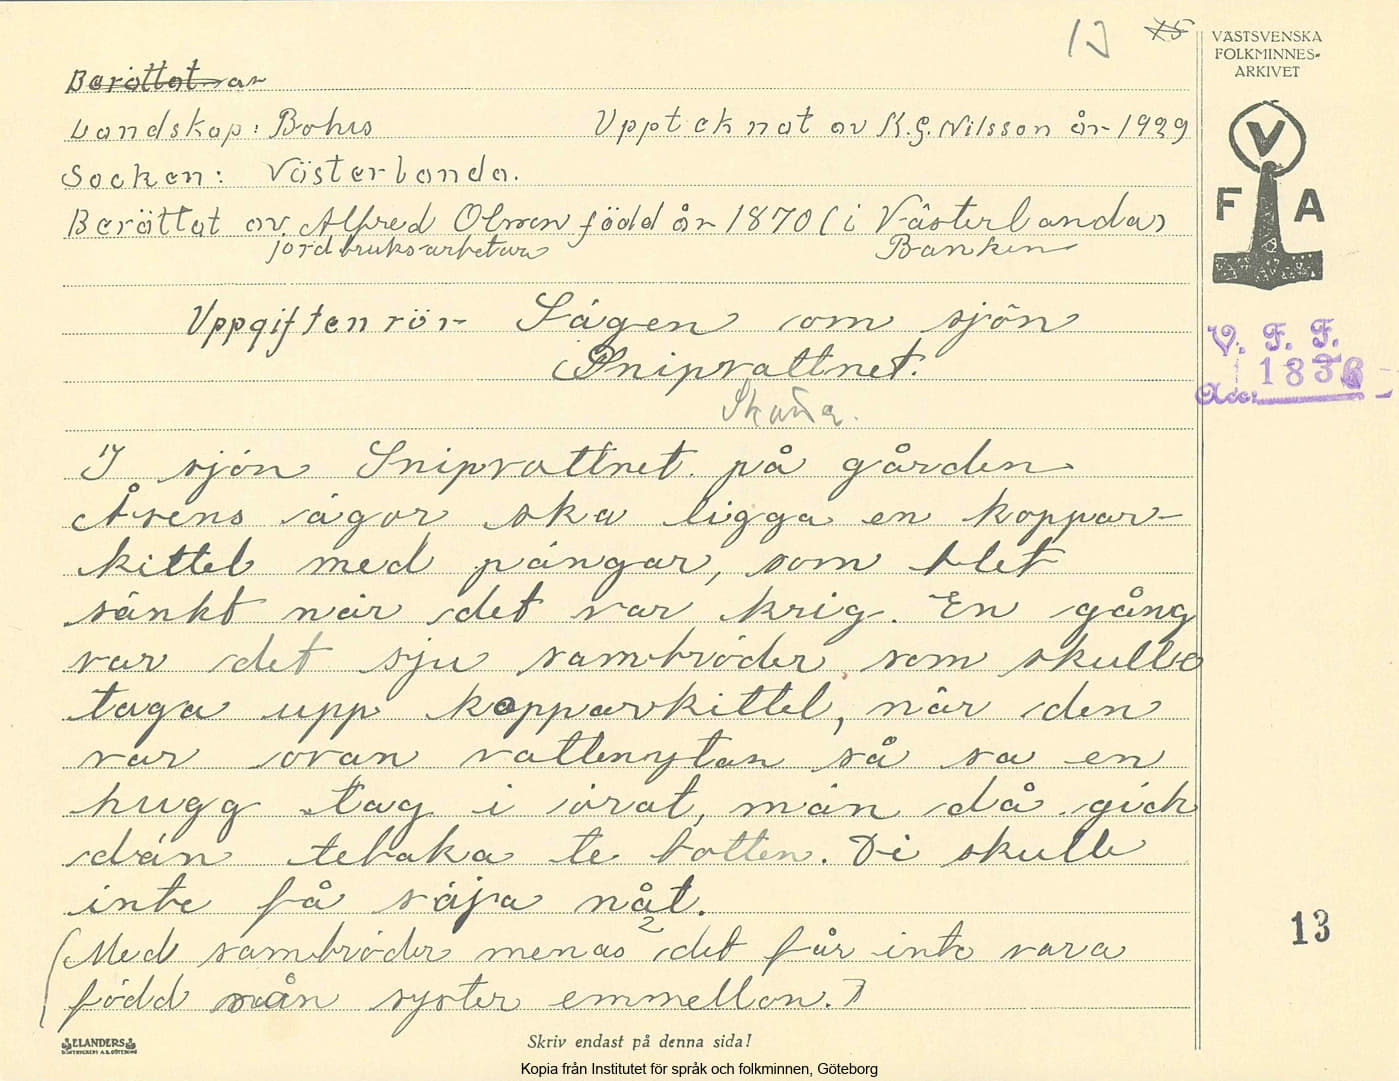 13 75
VÄSTSVENSKA
FOLKMINNES-
ARKIVET
Berättat av
Landskap: Bohus Upptecknat av K.G. Nilsson år 1929
Socken: Västerlanda.
Berättat av Alfred Olsson född år 1870 (i Västerlanda)
jordbruksarbetare Banken
V
F A
Uppgiften rör Sägen om sjön
Snipvattnet.
V. F. F.
Acc: 1836
I sjön Snipvattnet på gården
Årens ägor ska ligga en koppar-
kittel med pängar, som blet
sänkt när det var krig. En gång
var det sju sambröder som skulle
taga upp kopparkittel, när den
var ovan vattenytan så sa en
hugg tag i örat, män då gick
dän tebaka te botten. Di skulle
inte få säja nåt.
(Med sambröder menas det får inte vara
född nån syster emmellan.)
13
ELANDERS
Skriv endast på denna sida!
Kopia från Institutet för språk och folkminnen, Göteborg